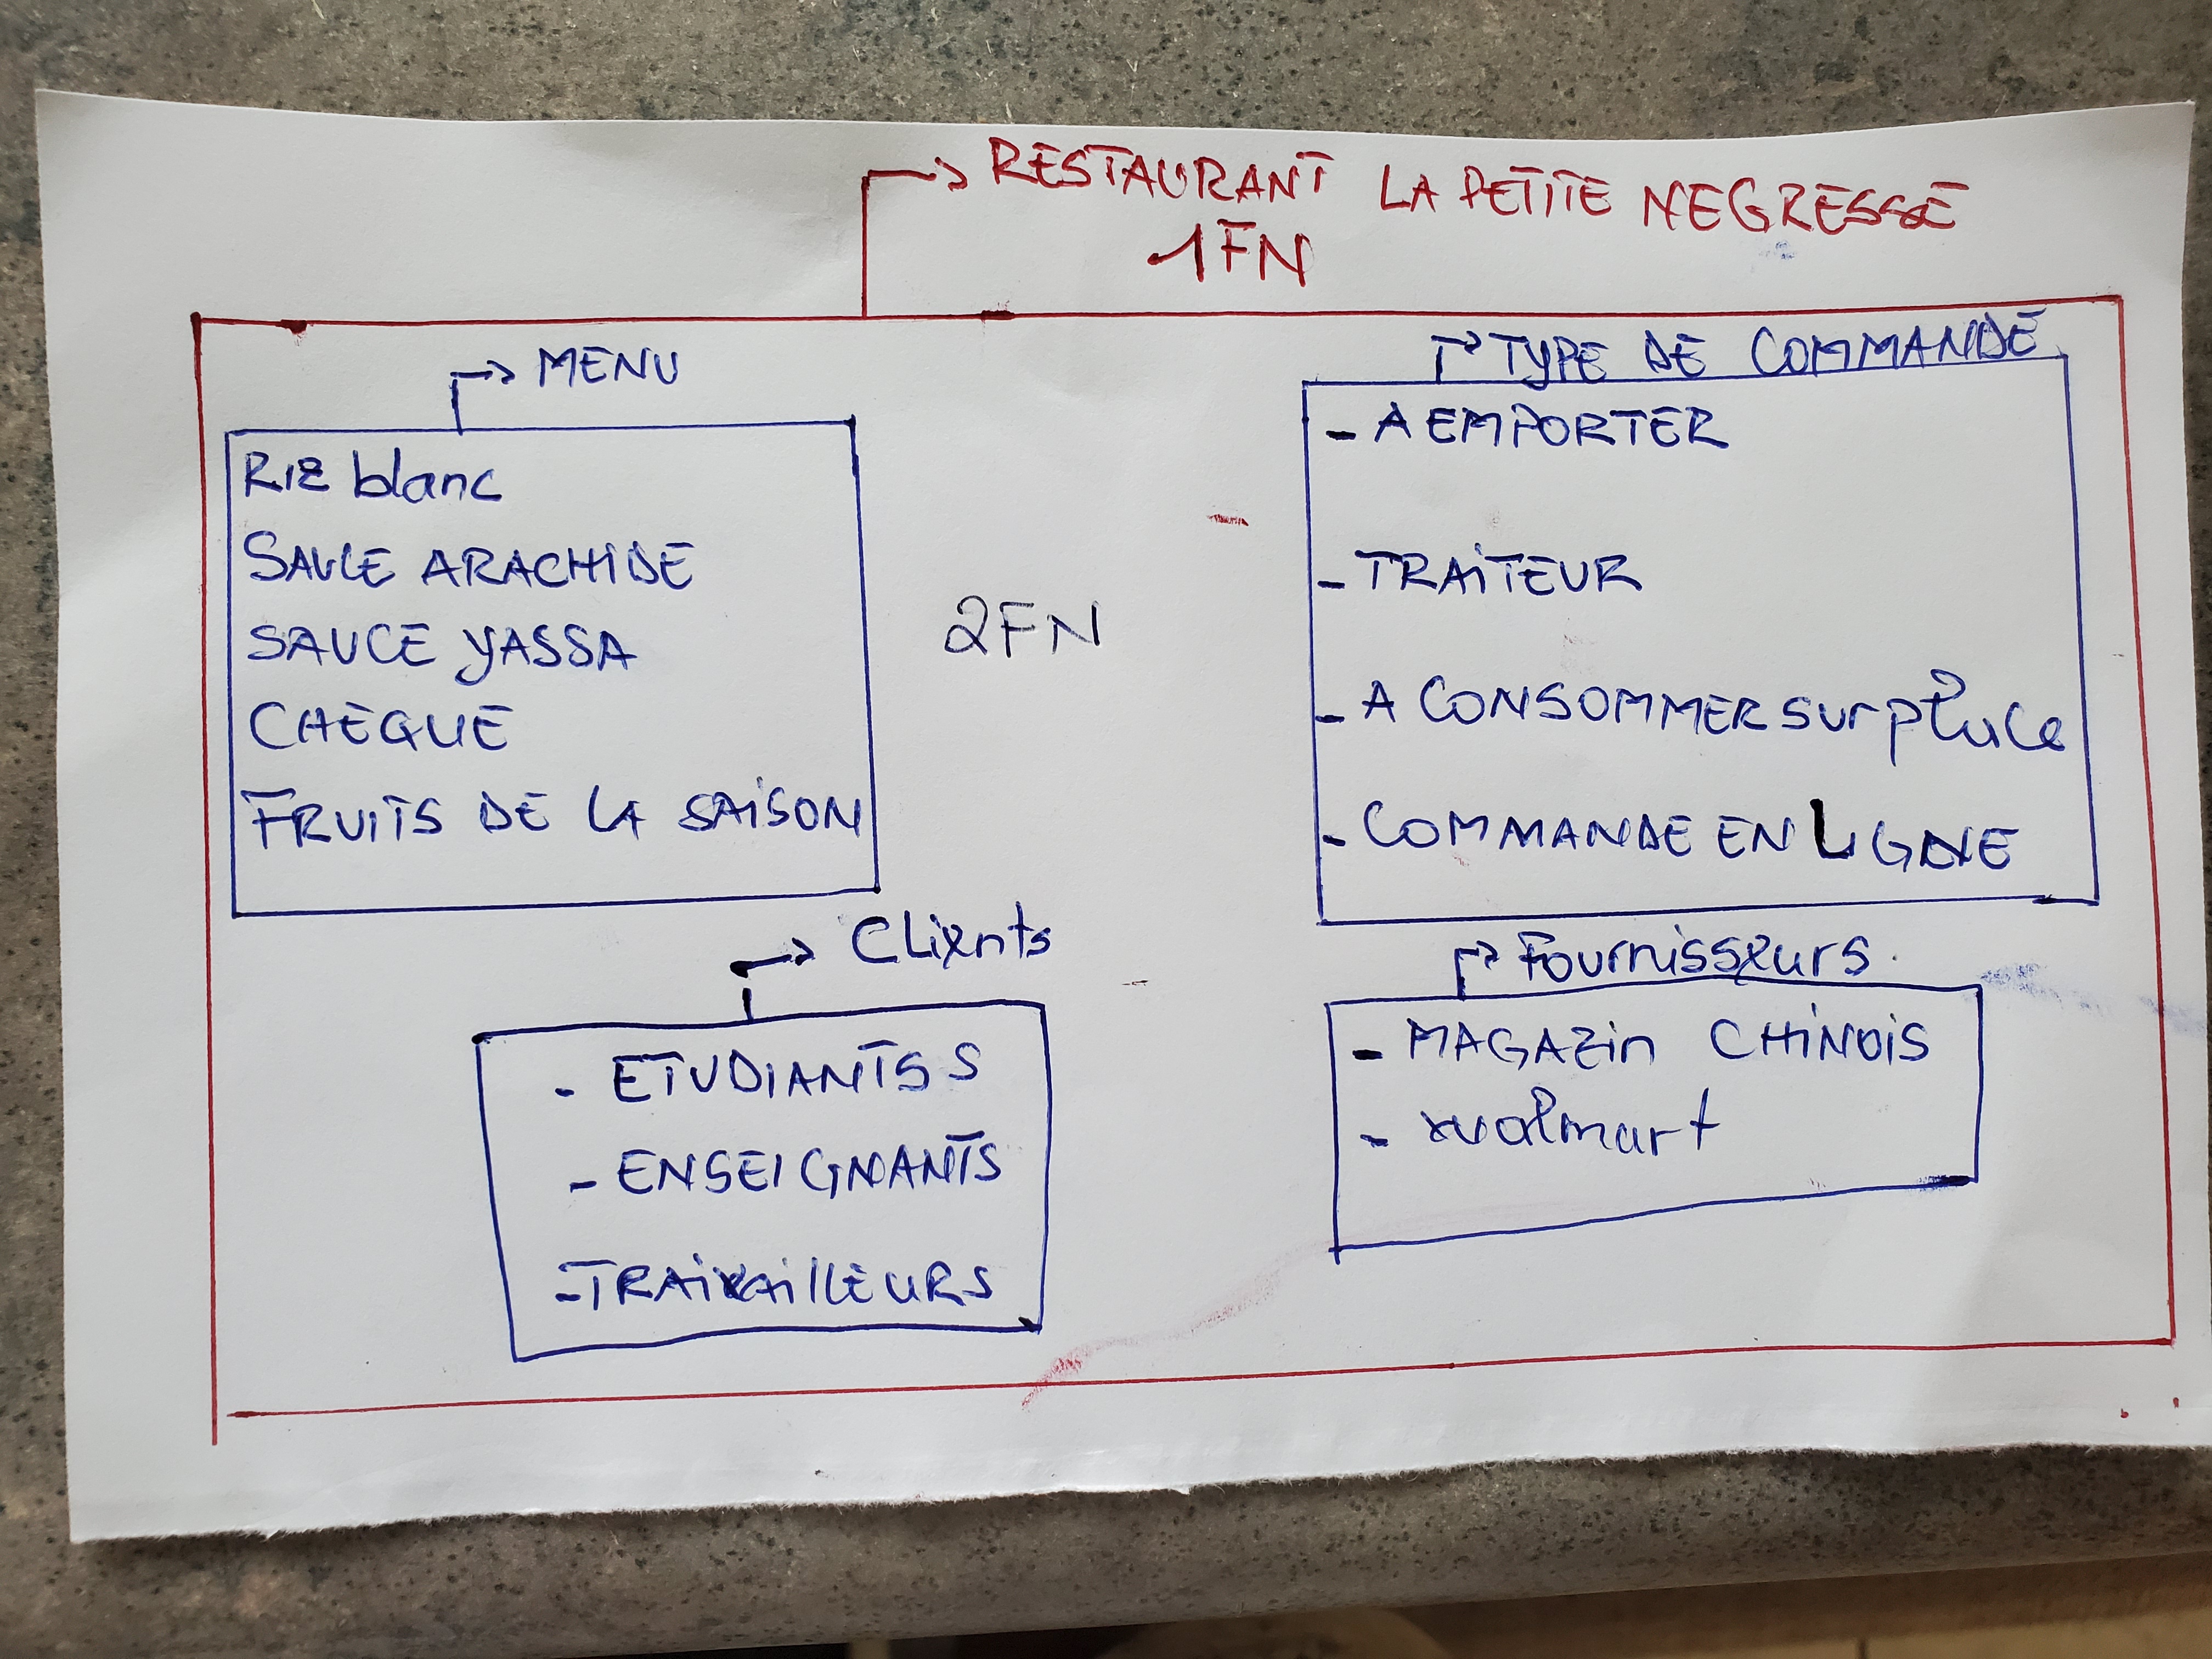 RESTAURANT LA PETITE NEGRESSE
1FN
MENU
RIZ blanc
SAUCE ARACHIDE
SAUCE YASSA
CHEQUE
FRUITS DE LA SAISON
2FN
TYPE DE COMMANDE
- A EMPORTER
- TRAITEUR
- A CONSOMMER sur place
- COMMANDE EN LIGNE
Clients
- ETUDIANTS S
- ENSEIGNANTS
- TRAIVAILLEURS
Fournisseurs
- MAGAZin CHINOIS
- walmart